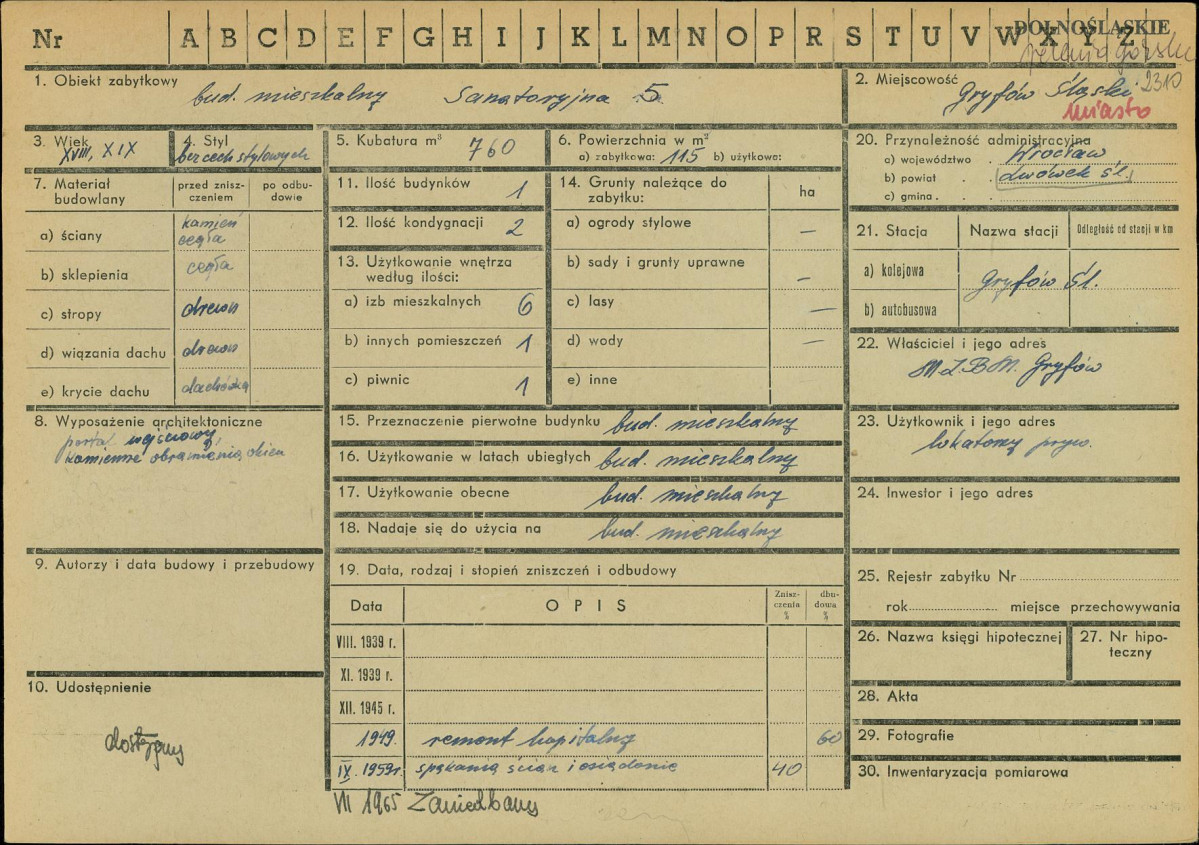 Nr A B C D E F G H I J K L M N O P R S T U V W X Y Z
DOLNOŚLĄSKIE
2310
1. Obiekt zabytkowy
bud. mieszkalny Sanatoryjna 5
2. Miejscowość
Gryfów Śląski
miasto
3. Wiek
XVIII, XIX
4. Styl
bez cech stylowych
5. Kubatura m³ 760
6. Powierzchnia w m²
a) zabytkowa: 115 b) użytkowa:
7. Materiał budowlany
przed znisz-
czeniem
po odbu-
dowie
a) ściany kamień
cegła
b) sklepienia cegła
c) stropy drewn
d) wiązania dachu drewn
e) krycie dachu dachówka
8. Wyposażenie architektoniczne
portal wejściowy,
kamienne obramienia okien
9. Autorzy i data budowy i przebudowy
10. Udostępnienie
dostępny
11. Ilość budynków 1
12. Ilość kondygnacji 2
13. Użytkowanie wnętrza
według ilości:
a) izb mieszkalnych 6
b) innych pomieszczeń 1
c) piwnic 1
14. Grunty należące do
zabytku:
ha
a) ogrody stylowe —
b) sady i grunty uprawne —
c) lasy —
d) wody —
e) inne
15. Przeznaczenie pierwotne budynku bud. mieszkalny
16. Użytkowanie w latach ubiegłych bud. mieszkalny
17. Użytkowanie obecne bud. mieszkalny
18. Nadaje się do użycia na bud. mieszkalny
19. Data, rodzaj i stopień zniszczeń i odbudowy
Data OPIS
Znisz-
czenia
%
dbu-
dowa
%
VIII. 1939 r.
XI. 1939 r.
XII. 1945 r.
1949. remont kapitalny 60
IX. 1959r. spękania ścian i osiadanie 40
VII 1965 Zaniedbany
20. Przynależność administracyjna
a) województwo Wrocław
b) powiat Lwówek Śl.
c) gmina
21. Stacja Nazwa stacji Odległość od stacji w km
a) kolejowa
Gryfów Śl.
b) autobusowa
22. Właściciel i jego adres
M.Z.B.M. Gryfów
23. Użytkownik i jego adres
lokatorzy pryw.
24. Inwestor i jego adres
25. Rejestr zabytku Nr
rok miejsce przechowywania
26. Nazwa księgi hipotecznej
27. Nr hipo-
teczny
28. Akta
29. Fotografie
30. Inwentaryzacja pomiarowa